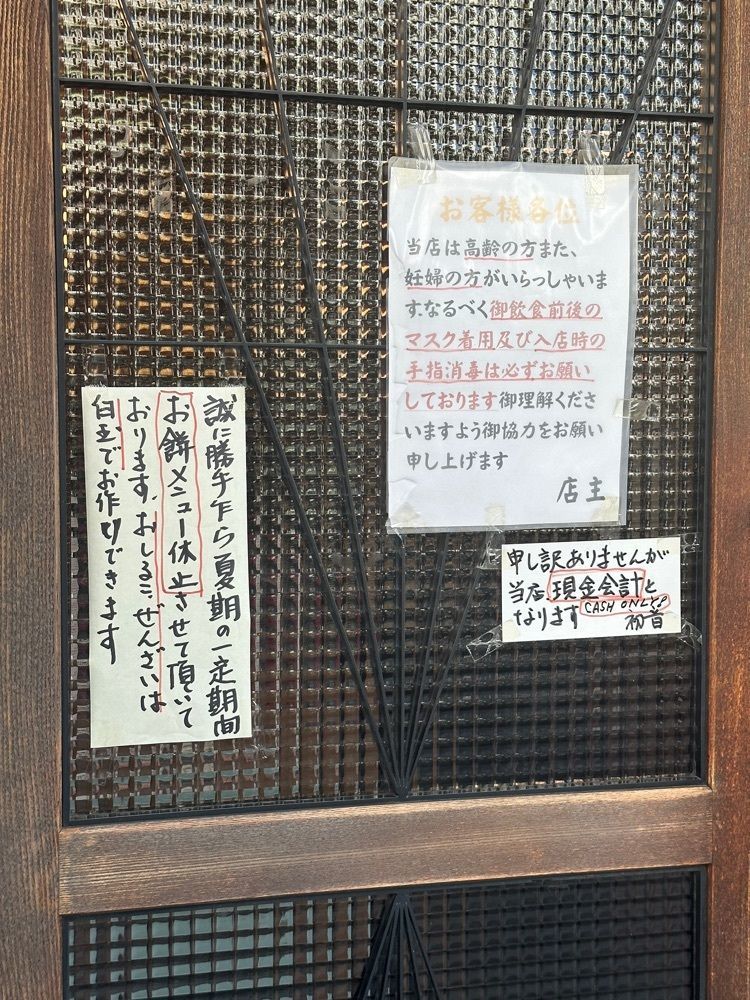 お客様各位
当店は高齢の方また、
妊婦の方がいらっしゃいま
す。なるべく御飲食前後の
マスク着用及び入店時の
手指消毒は必ずお願い
しております御理解くださ
いますよう御協力をお願い
申し上げます
店主
誠に勝手乍ら夏期の一定期間
お餅メニュー休止させて頂いて
おります。おしるこ、ぜんざいは
白玉でお作りできます
申し訳ありませんが
当店、現金会計と
なります CASH ONLY?
初音